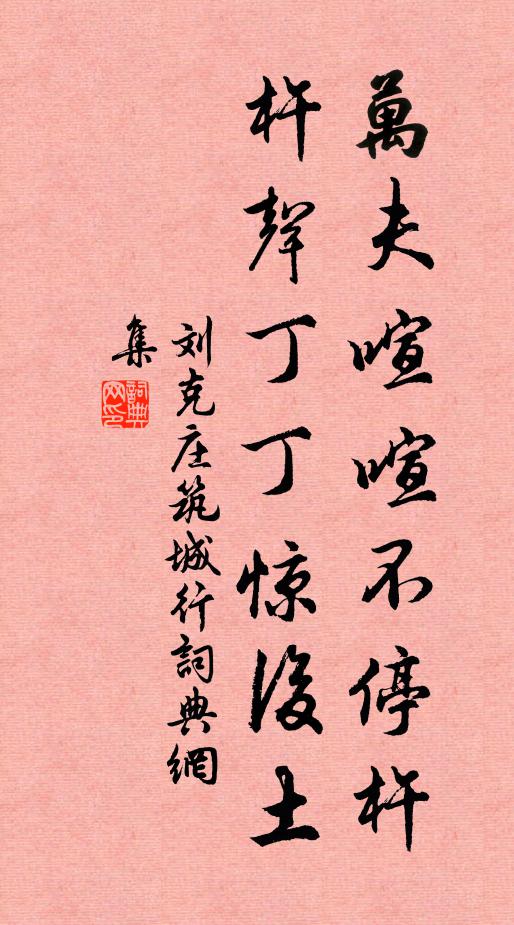 萬夫喧喧不停杵
杵聲丁丁惊後土
刘克庄筑城行詞典網
集
詞典网印